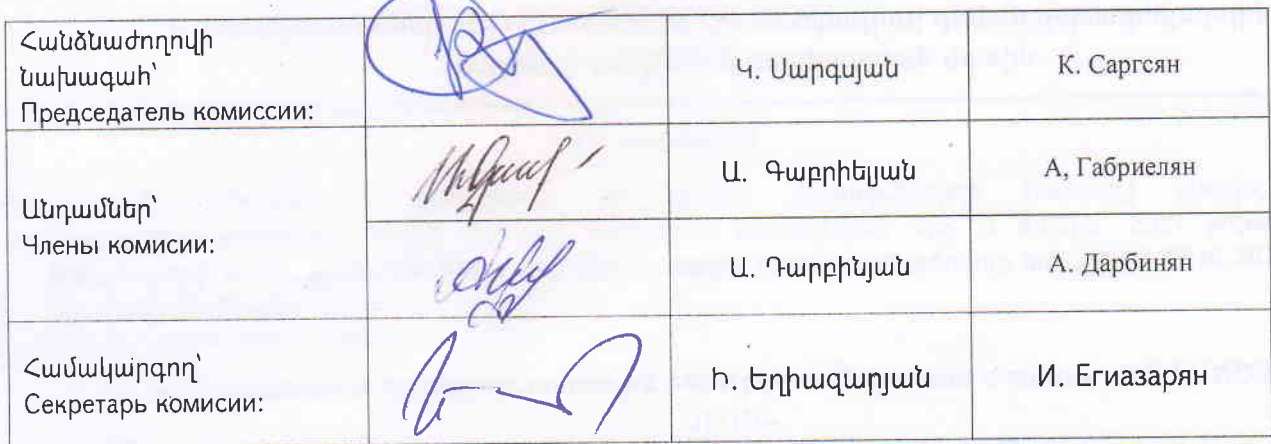 Հանձնաժողովի
նախագահ՝
Председатель комиссии:
Կ. Սարգսյան
К. Саргсян
Անդամներ՝
Члены комисии:
Ա. Գաբրիելյան
А, Габриелян
Ա. Դարբինյան
А. Дарбинян
Համակարգող՝
Секретарь комисии:
Ի. Եղիազարյան
И. Егиазарян